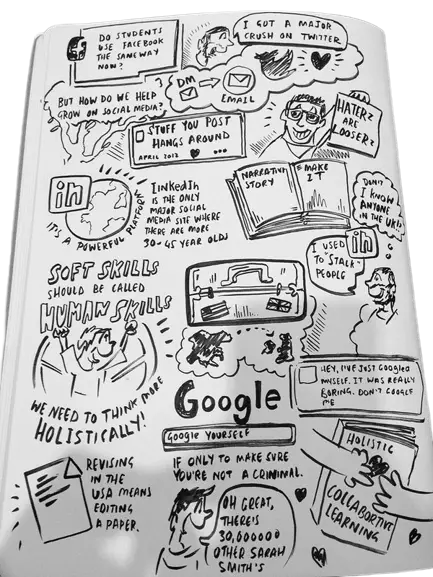 DO STUDENTS
USE FACEBOOK
THE SAME WAY
NOW?
I GOT A MAJOR
CRUSH ON TWITTER
DM
EMAIL
BUT HOW DO WE HELP
GROW ON SOCIAL MEDIA?
STUFF YOU POST
HANGS AROUND
APRIL 2012
HATERZ
AR
LOOSERZ
NARRATIVE
STORY
MAKE
IT
in
IT'S A POWERFUL PLATFORM
LINKEDIN
IS THE ONLY
MAJOR SOCIAL
MEDIA SITE WHERE
THERE ARE MORE
30-45 YEAR OLDS
DON'T
I KNOW
ANYONE
IN THE UK!?
in
I USED
TO "STALK"
PEOPLE
SOFT SKILLS
SHOULD BE CALLED
HUMAN SKILLS
WE NEED TO THINK MORE
HOLISTICALLY!
Google
GOOGLE YOURSELF
IF ONLY TO MAKE SURE
YOU'RE NOT A CRIMINAL.
HEY, I'VE JUST GOOGLED
MYSELF. IT WAS REALLY
BORING. DON'T GOOGLE
ME
REVISING
IN THE
USA MEANS
EDITING
A PAPER.
OH GREAT,
THERE'S
30,600000
OTHER SARAH
SMITH'S
HOLISTIC
COLLABORTIVE
LEARNING